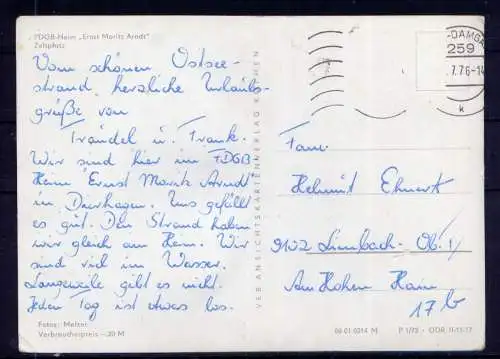 FDGB-Heim „Ernst Moritz Arndt"
Zeltplatz
Vom schönen Ostsee-
strand, herzliche Urlaubs-
grüße von
Traudel u. Frank.
Wir sind hier im FDGB
Heim "Ernst Moritz Arndt"
in Dierhagen. Uns gefällt
es gut. Den Strand haben
wir gleich am Heim. Wir
sind viel im Wasser.
Langeweile gibt es nicht.
Jeden Tag ist etwas los.
Fotos: Melzer
Verbraucherpreis -,20 M
VEB ANSICHTSKARTENVERLAG KÖTHEN
-DAMGA
259
7.76-14
k
Fam.
Helmut Ehnert
9102 Limbach-Ob. 1/
Am Hohen Hain
17b
06 01 0214 M P 1/72 · DDR II-11-17